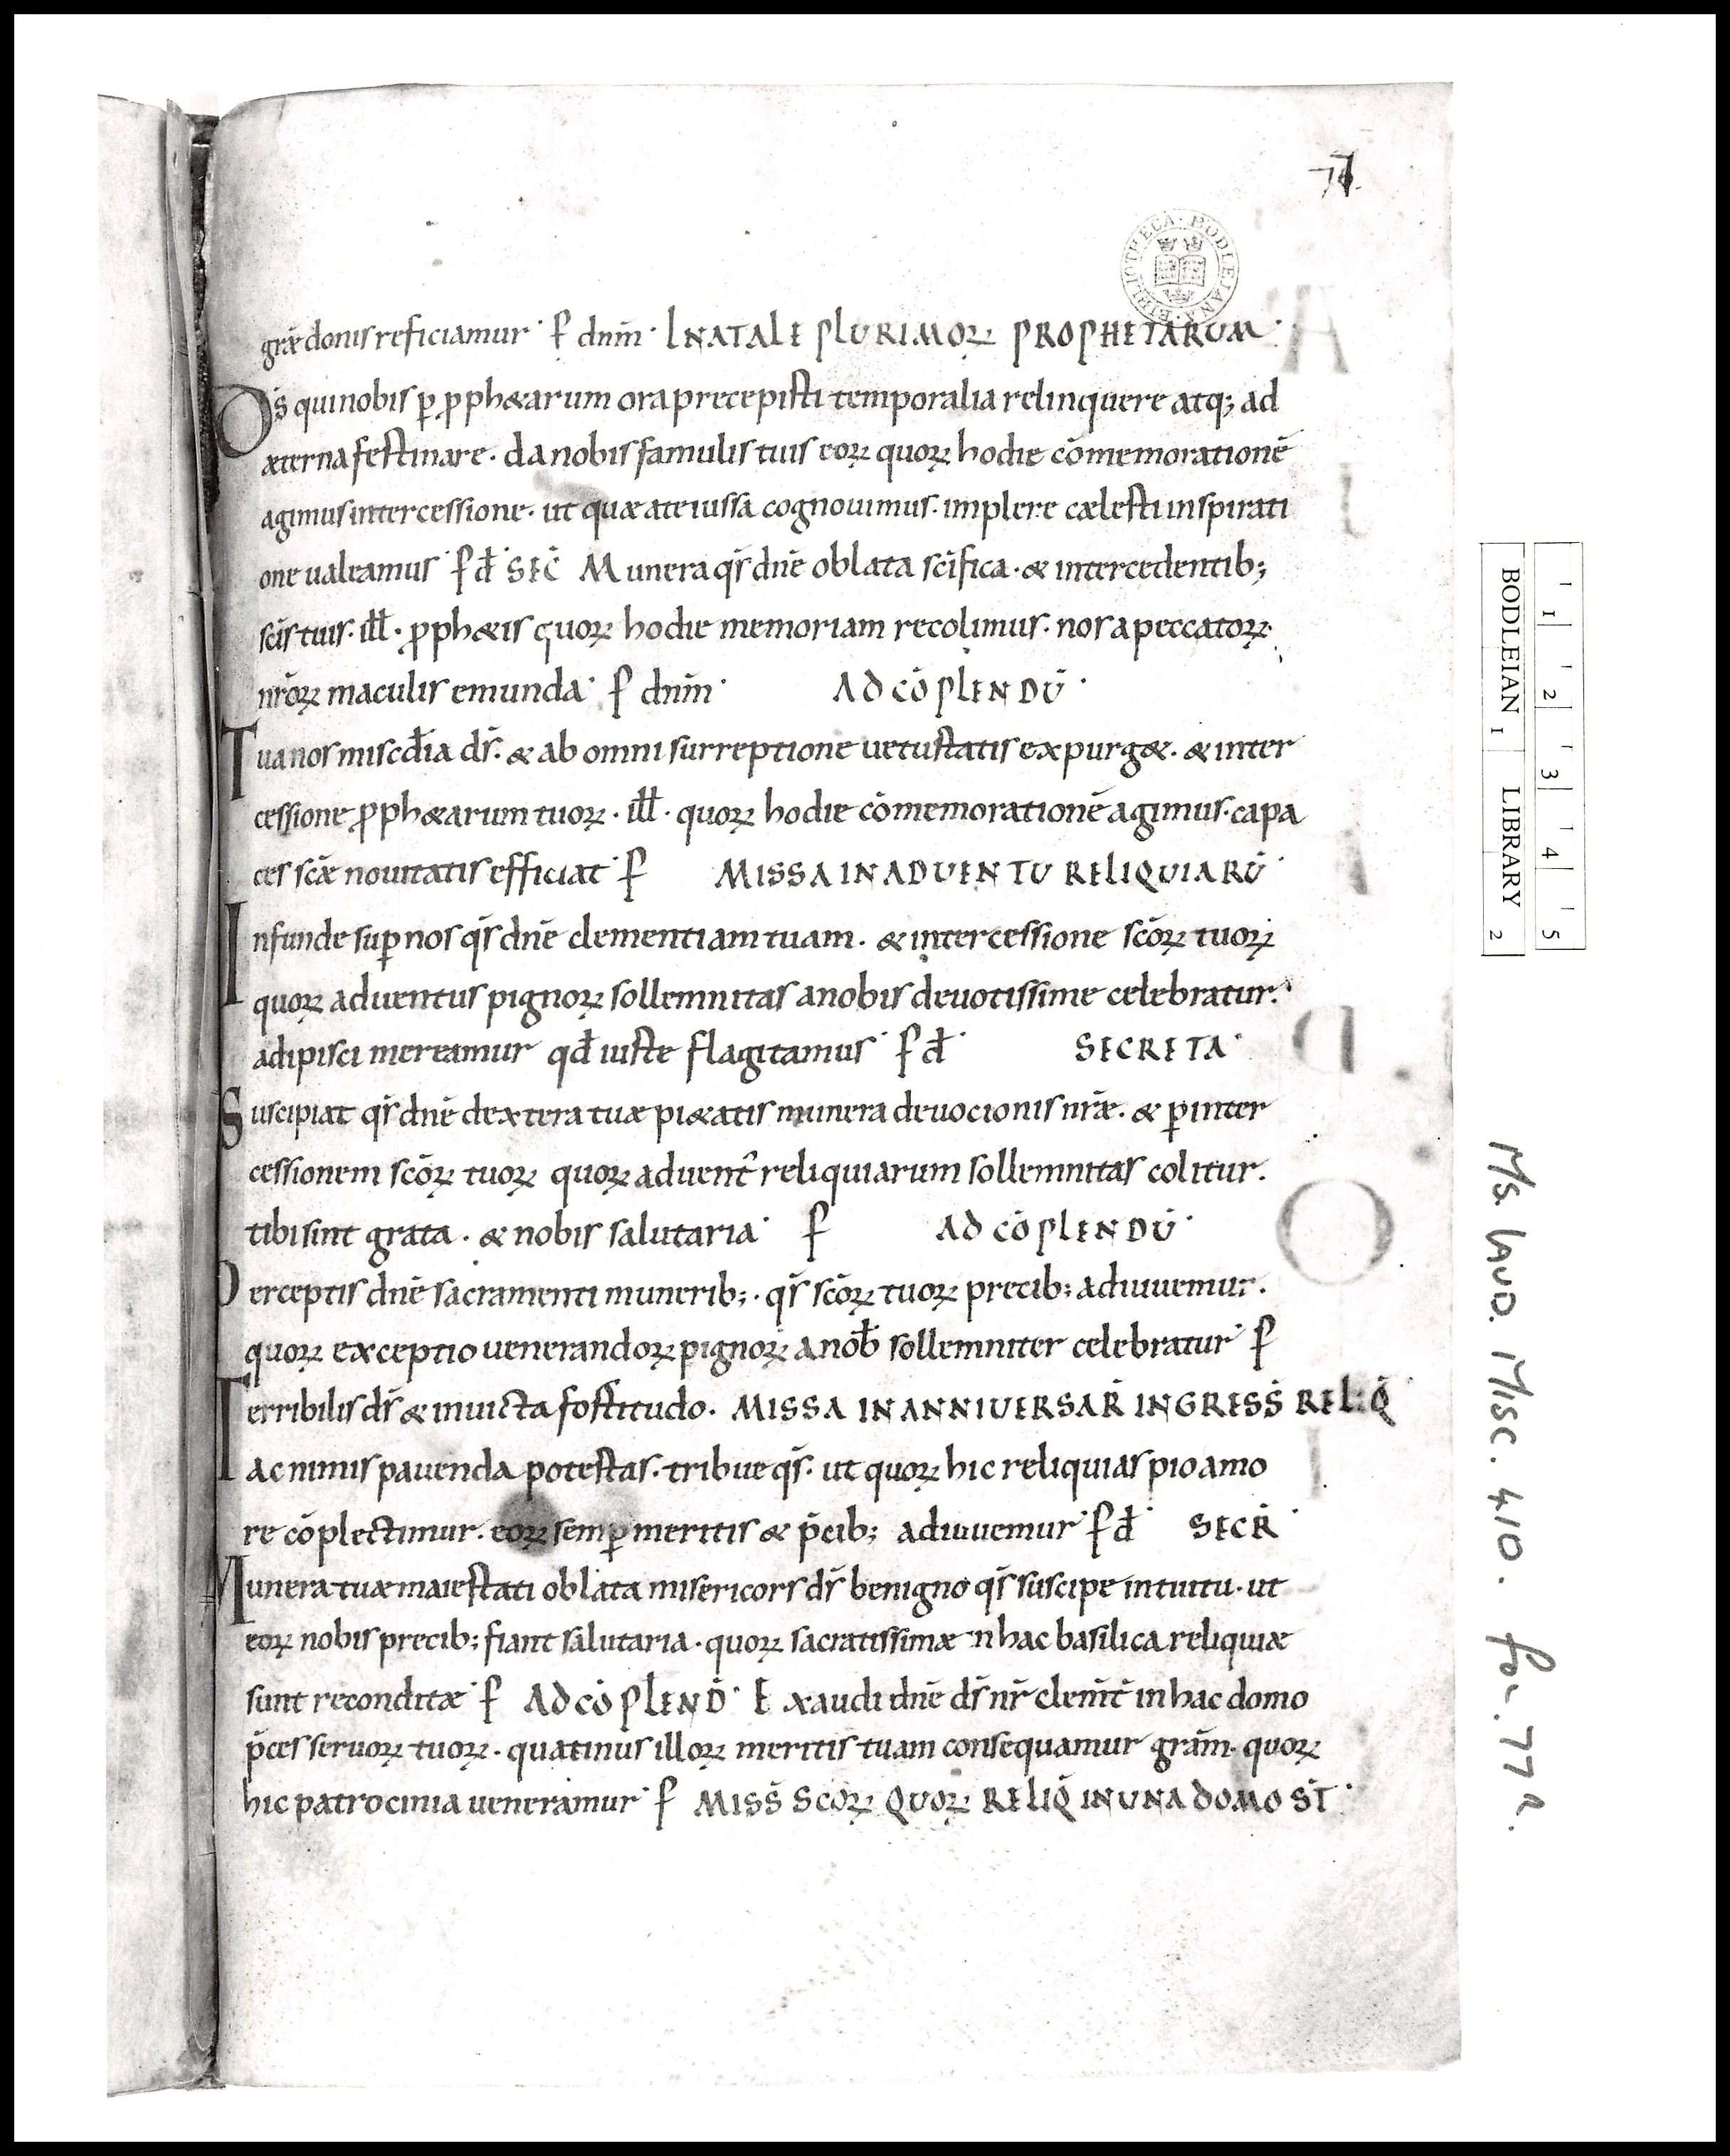 77
BIBLIOTHECA · BODLEIANA
grǣ donis reficiamur · ꝑ dnm̄ · IN NATALE PLURIMOꝜ PROPHETARUM ·
D̄s qui nobis ꝑ ꝓphetarum ora precepisti temporalia relinquere atq; ad
æterna festinare · da nobis famulis tuis eoꝝ quoꝝ hodie cōmemorationē
agimus intercessione · ut quæ a te iussa cognouimus · implere cælesti inspirati
one ualeamus · ꝑ d̄ · SEC̄ Munera qs̄ dnē oblata scīfica · & intercedentib;
scīs tuis · ill̄ · ꝓph&is quoꝝ hodie memoriam recolimus · nos a peccatoꝝ
nrōꝝ maculis emunda · ꝑ dnm̄ · AD CŌPLENDŪ ·
Tua nos miscd̄ia ds̄ · & ab omni surreptione uetustatis expurg& · & inter
cessione ꝓph&arum tuoꝝ · ill̄ · quoꝝ hodie cōmemorationē agimus · capa
ces scǣ nouitatis efficiat · ꝑ MISSA IN ADUENTU RELIQUIARŪ ·
Infunde suꝑ nos qs̄ dnē clementiam tuam · & intercessione scōꝝ tuoꝝ
quoꝝ aduentus pignoꝝ sollemnitas a nobis deuotissime celebratur ·
adipisci mereamur qd̄ iuste flagitamus · ꝑ d̄ · SECRETA ·
Suscipiat qs̄ dnē dextera tuæ pi&atis munera deuocionis nrǣ · & ꝑ inter
cessionem scōꝝ tuoꝝ quoꝝ aduent᷒ reliquiarum sollemnitas colitur ·
tibi sint grata · & nobis salutaria · ꝑ AD CŌPLENDŪ ·
Perceptis dnē sacramenti munerib; · qs̄ scōꝝ tuoꝝ precib; adiuuemur ·
quoꝝ exceptio uenerandoꝝ pignoꝝ a nob̄ sollemniter celebratur · ꝑ
Terribilis ds̄ & inuicta fostitudo · MISSA IN ANNIUERSAR̄ INGRESS̄ RELIQ̄ ·
ac nimis pauenda potestas · tribue qs̄ · ut quoꝝ hic reliquias pio amo
re cōplectimur · eoꝝ semꝑ meritis & p̄cib; adiuuemur · ꝑ d̄ · SECR̄ ·
Munera tuæ maiestati oblata misericors ds̄ benigno qs̄ suscipe intuitu · ut
eoꝝ nobis precib; fiant salutaria · quoꝝ sacratissimæ in hac basilica reliquiæ
sunt reconditæ · ꝑ AD CŌPLEND̄ · Exaudi dnē ds̄ nr̄ clem̄t̄ in hac domo
p̄ces seruoꝝ tuoꝝ · quatinus illoꝝ meritis tuam consequamur grām · quoꝝ
hic patrocinia ueneramur · ꝑ MISS̄ SCOꝜ QUOꝜ RELIQ̄ IN UNA DOMO ST̄ ·
1 2 3 4 5
BODLEIAN LIBRARY
1 2
MS. LAUD. MISC. 410. fol. 77 R.